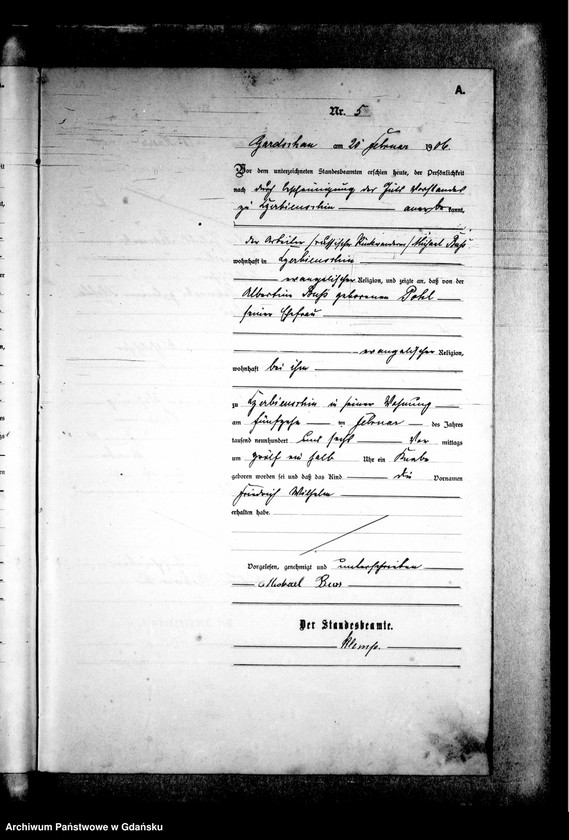 A.
Nr. 5
Gardschau am 20 Februar 1906.
Vor dem unterzeichneten Standesbeamten erschien heute, der Persönlichkeit
nach durch Bescheinigung der Guts Vorstandes
zu anerkannt,
der Arbeiter (russischer Rückwanderer) Michael
wohnhaft in
evangelischer Religion, und zeigte an, daß von der
Albertine geborenen Pohl
seiner Ehefrau
evangelischer Religion,
wohnhaft bei ihm
zu in seiner Wohnung
am fünfzehn ten Februar des Jahres
tausend neunhundert und sechs Vor mittags
um zwölf ein halb Uhr ein Knabe
geboren worden sei und daß das Kind die Vornamen
Friedrich Wilhelm
erhalten habe.
Vorgelesen, genehmigt und unterschrieben
Michael
Der Standesbeamte.
Klemp.
Archiwum Państwowe w Gdańsku